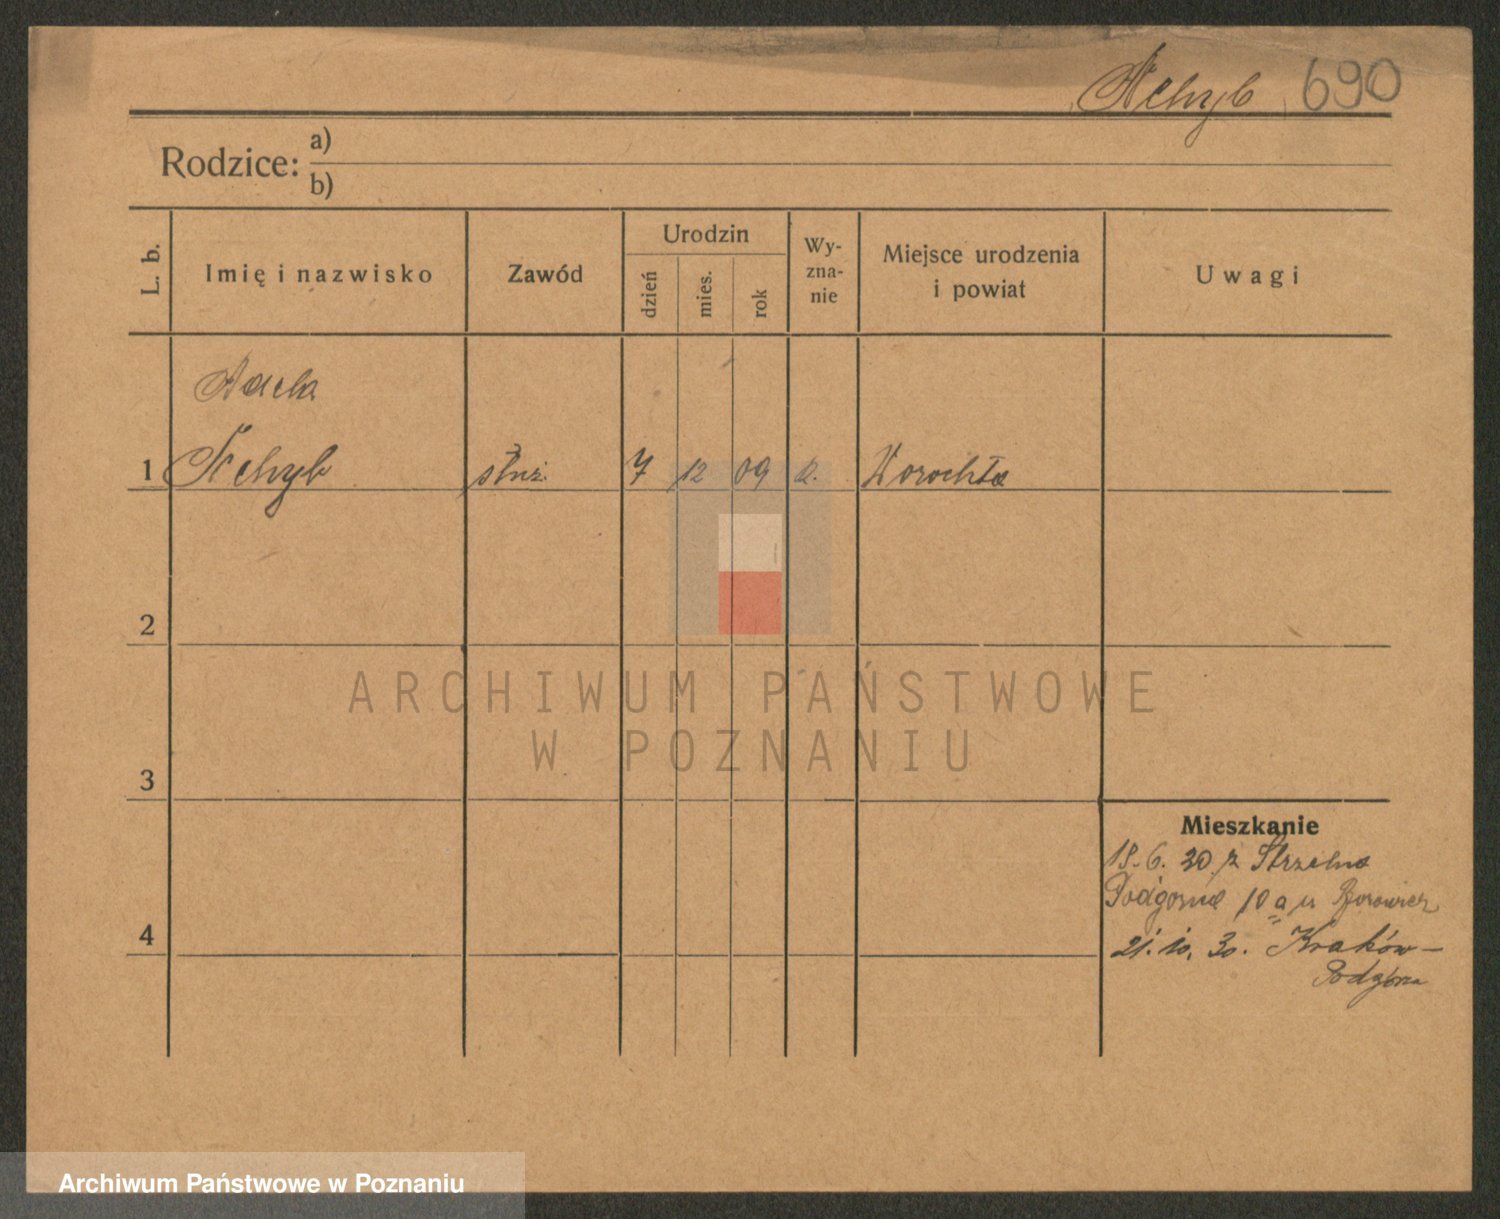 Nehyb 690
Rodzice: a)
b)
L. b. Imię i nazwisko Zawód Urodzin dzień mies. rok Wy-zna-nie Miejsce urodzenia i powiat Uwagi
Adela
1 Nehyb służ. 7 12 09 k. Worochta
2
3
4
Mieszkanie
18.6.30 z Strzelna
Podgórna 10a u Borowicz
21.10.30. Kraków-
Podgórze
ARCHIWUM PAŃSTWOWE
W POZNANIU
Archiwum Państwowe w Poznaniu